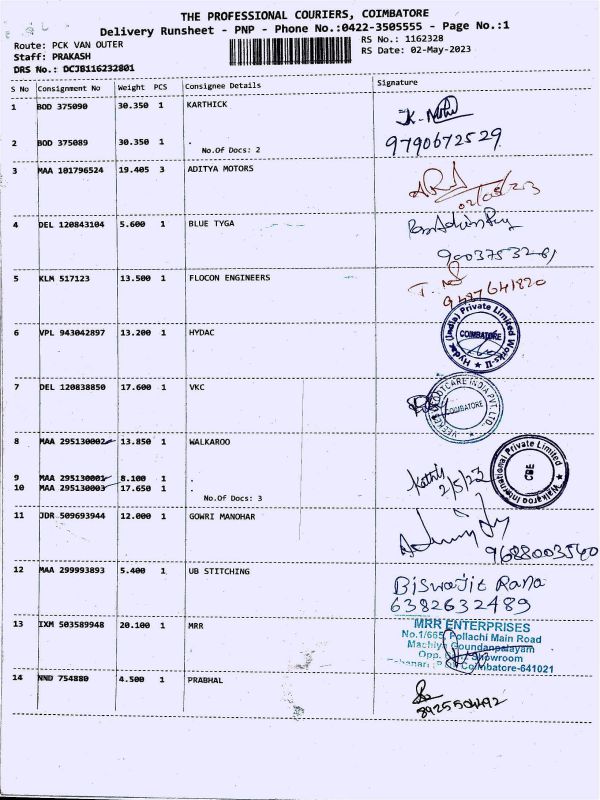 THE PROFESSIONAL COURIERS, COIMBATORE
Delivery Runsheet - PNP - Phone No.:0422-3505555 - Page No.:1
Route: PCK VAN OUTER
RS No.: 1162328
Staff: PRAKASH
RS Date: 02-May-2023
DRS No.: DCJB116232801
S No Consignment No Weight PCS Consignee Details Signature
1 BOD 375090 30.350 1 KARTHICK
2 BOD 375089 30.350 1 .
9790672529
No.Of Docs: 2
3 MAA 101796524 19.405 3 ADITYA MOTORS
02/05/23
4 DEL 120843104 5.600 1 BLUE TYGA
9003753261
5 KLM 517123 13.500 1 FLOCON ENGINEERS
9487641820
6 VPL 943042897 13.200 1 HYDAC
Hydac (India) Private Limited Works-II
COIMBATORE
7 DEL 120838850 17.600 1 VKC
FOOTCARE INDIA PVT. LTD
COIMBATORE
8 MAA 295130002 13.850 1 WALKAROO
Walkaroo International Private Limited
CBE
9 MAA 295130001 8.100 1 .
2/5/23
10 MAA 295130003 17.650 1
No.Of Docs: 3
11 JDR 509693944 12.000 1 GOWRI MANOHAR
9688003540
12 MAA 299993893 5.400 1 UB STITCHING
Biswajit Rana
6382632489
13 IXM 503589948 20.100 1 MRR
MRR ENTERPRISES
No.1/665, Pollachi Main Road
Machiya Goundanpalayam
Opp. Showroom
Coimbatore-641021
14 NND 754880 4.500 1 PRABHAL